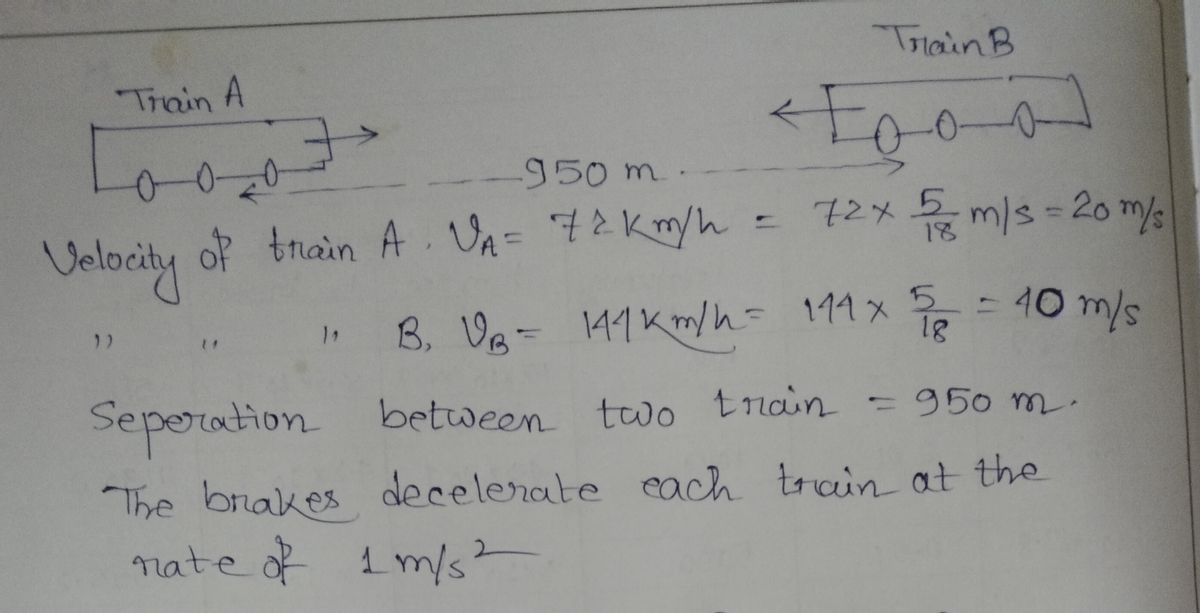 Train B
Train A
950 m
Velocity of train A, V_A = 72 Km/h = 72 × 5/18 m/s = 20 m/s
” ” ” B, V_B = 144 Km/h = 144 × 5/18 = 40 m/s
Seperation between two train = 950 m.
The brakes decelerate each train at the
rate of 1 m/s²